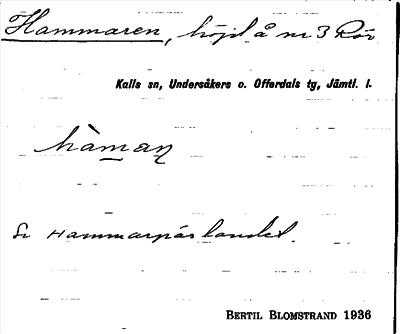 Hammaren, höjd å nr 3 Rör
Kalls sn, Undersåkers o. Offerdals tg, Jämtl. l.
hàman
Se Hammarnäslandet.
BERTIL BLOMSTRAND 1936